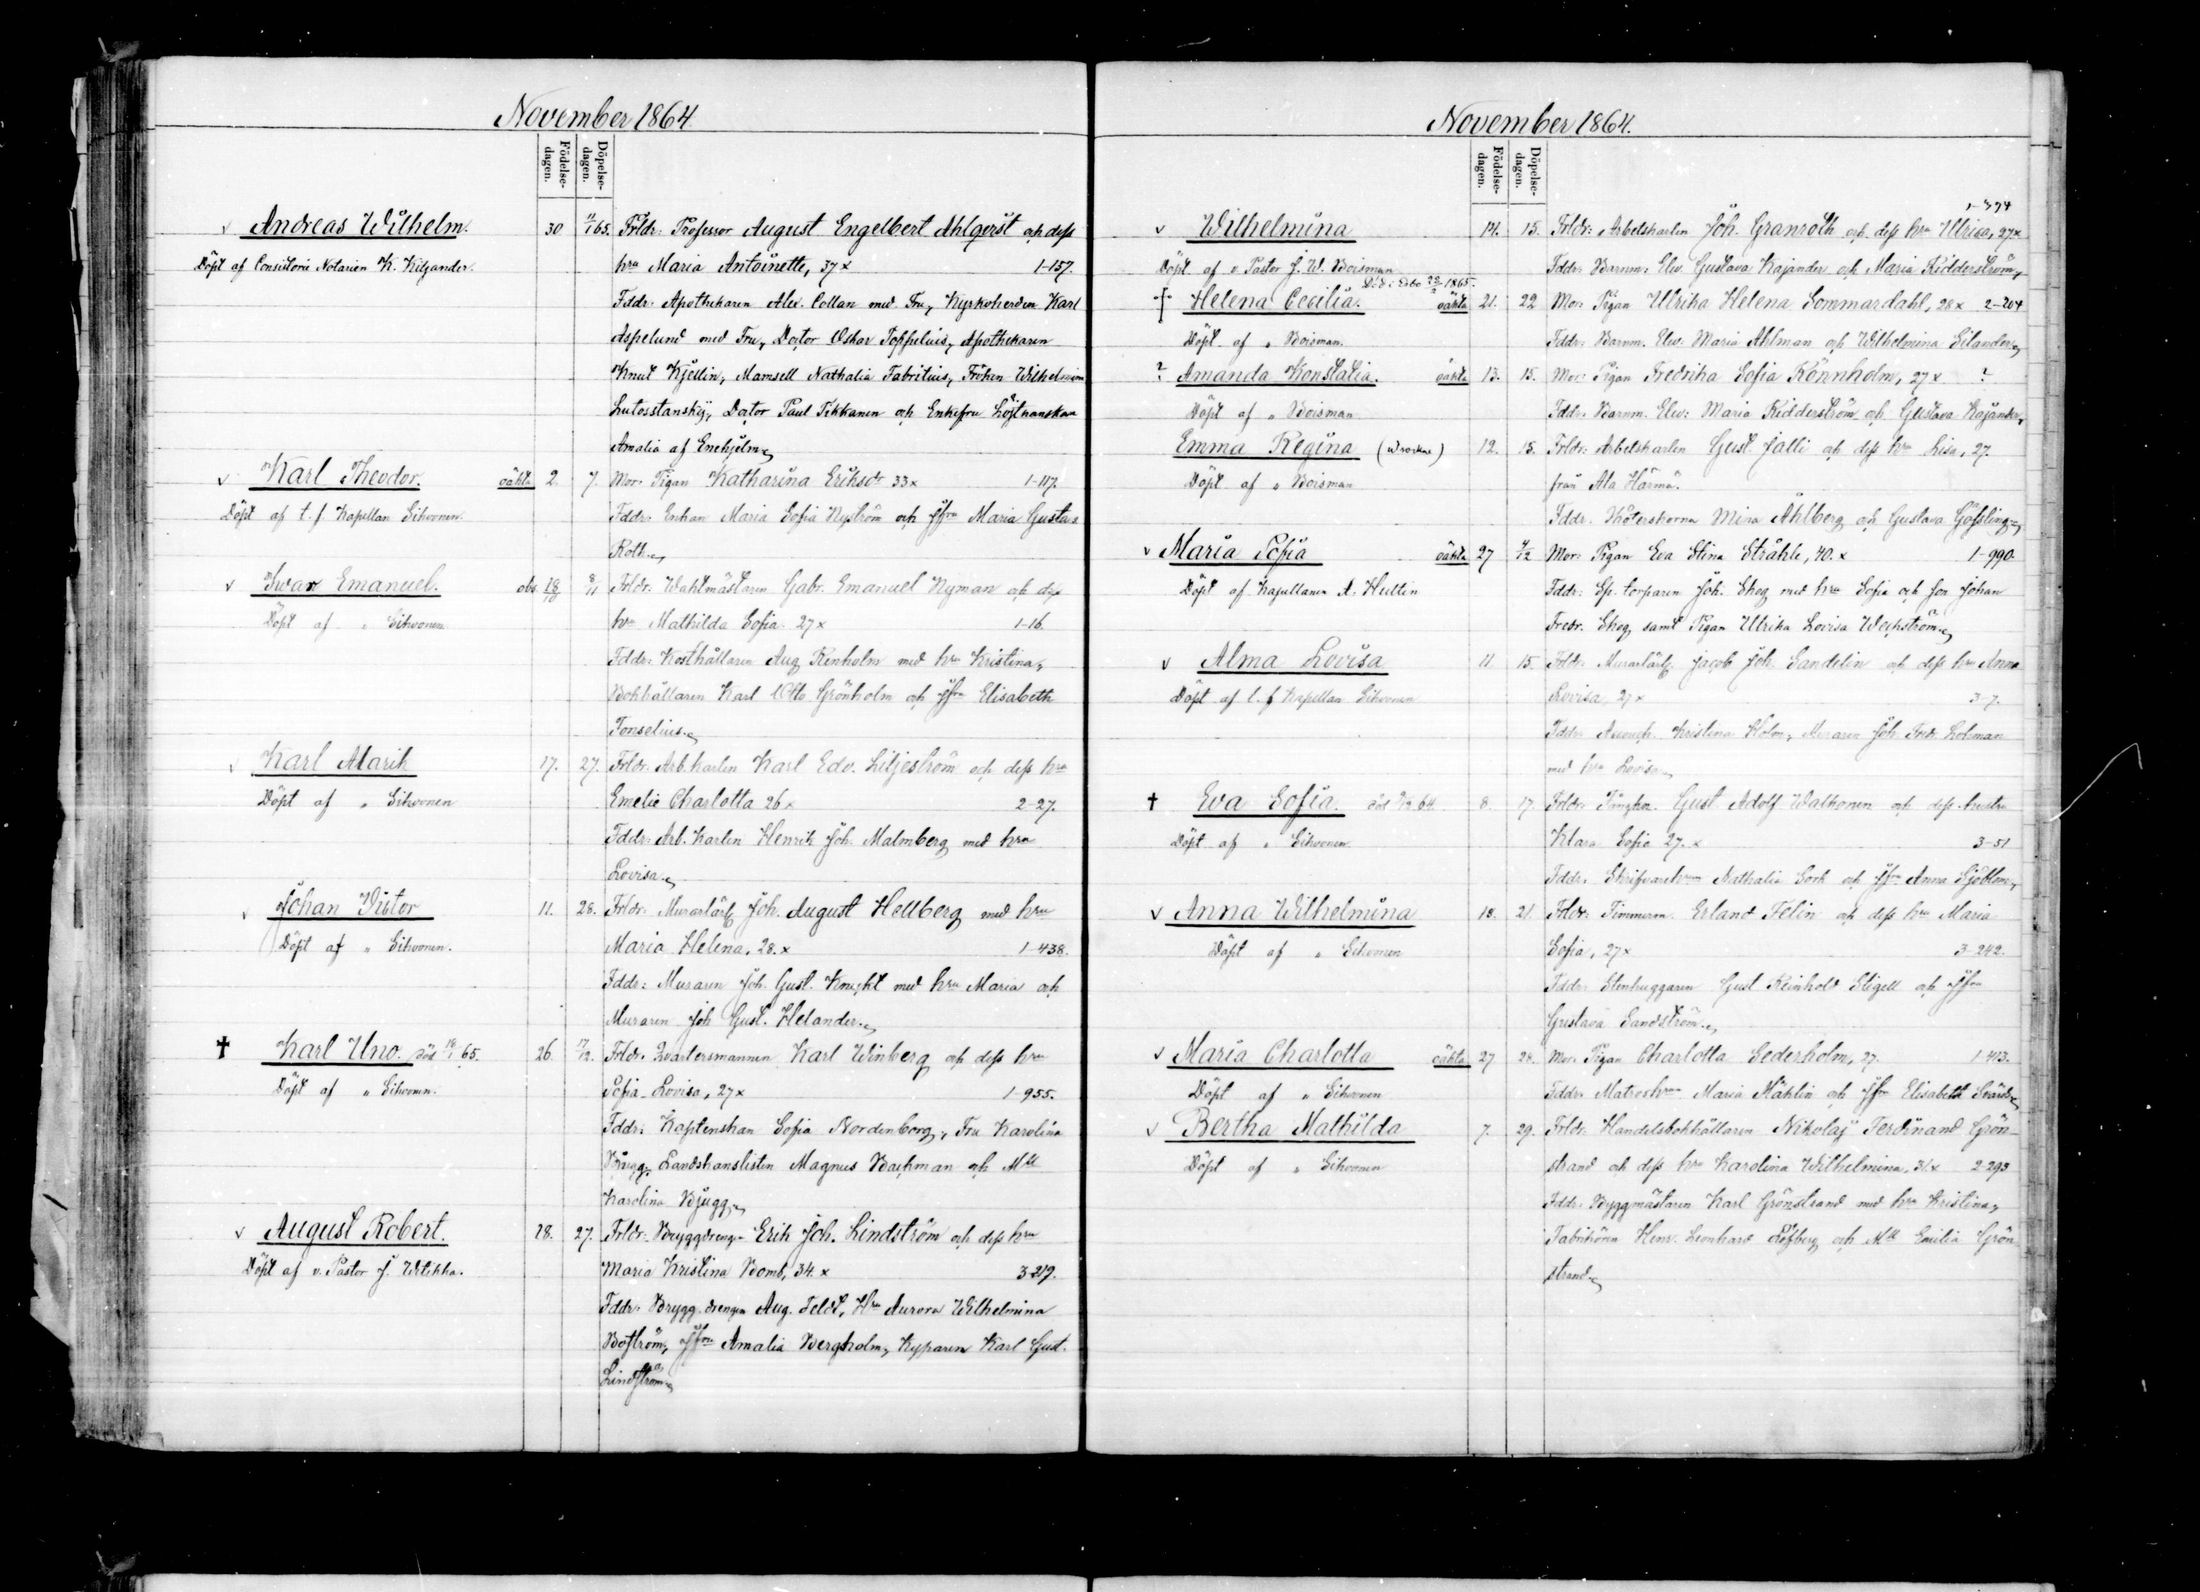 November 1864.
Födelse-dagen.
Döpelse-dagen.
Andreas Wilhelm. 30 11/1 65. Frldr: Professor August Engelbert Ahlqvist och dess
Döpt af Consistorie Notarien K. Kiljander. hru Maria Antoinette, 37 x 1-157.
Fddr: Apothekaren Alex. Collan med Fru, Kyrkoherden Karl
Aspelund med Fru, Doctor Oskar Toppelius, Apothekaren
Knut Kjellin, Mamsell Nathalia Fabritius, Fröken Wilhelmina
Lutosstansky, Doctor Paul Tikkanen och Enkefru Löjtnanskan
Amalia af Enehjelm
v Karl Theodor. oäkta 2. 7. Mor: Pigan Katharina Eriksdr 33 x 1-117.
Döpt af t. f. Kapellan Sihvonen. Fddr: Enkan Maria Sofia Nyström och Jfru Maria Gustava
Roth
v Iwar Emanuel. obs. 18/10 8/11 Frldr: Waktmästaren Gabr. Emanuel Nyman och dess
Döpt af " Sihvonen hru Mathilda Sofia 27 x 1-16.
Fddr: Kosthållaren Aug Renholm med hru Kristina,
Bokhållaren Karl Otto Grönholm och Jfru Elisabeth
Fonselius
v Karl Alarik 17. 27. Frldr: Arb. karlen Karl Edv. Liljeström och dess hru
Döpt af " Sihvonen Emelie Charlotta 26 x 2-27.
Fddr: Arb. Karlen Henrik Joh. Malmberg med hru
Lovisa
v Johan Victor 11. 28. Frldr: Murarlärl Joh. August Hellberg med hru
Döpt af " Sihvonen. Maria Helena, 28. x 1-438.
Fddr: Muraren Joh. Gust. Knecht med hru Maria och
Muraren Joh Gust. Helander
† Karl Uno. död 18/1 65. 26. 17/12. Frldr: Qvartersmannen Karl Winberg och dess hru
Döpt af " Sihvonen. Sofia Lovisa, 27 x 1-955.
Fddr: Kaptenskan Sofia Nordenborg, Fru Karolina
Bjugg, Landskanslisten Magnus Backman och Mll
Karolina Bjugg
v August Robert. 28. 27. Frldr: Bryggdrengen Erik Joh. Lindström och dess hru
Döpt af v. Pastor J. Witikka. Maria Kristina Bomb, 34. x 3-219.
Fddr: Brygg. drengen Aug. Feldt, Hru Aurora Wilhelmina
Boström, Jfru Amalia Bergholm, Kyparen Karl Gust.
Lindström
November 1864.
Födelse-dagen.
Döpelse-dagen.
1-394
v Wilhelmina 14. 15. Frldr: Arbetskarlen Joh. Granroth och dess hru Ulrica, 27 x
Döpt af v. Pastor J. W. Boisman Fddr: Barnm. Elev. Gustava Kajander och Maria Ridderström,
Död i Esbo 22/2 1865.
† Helena Cecilia. oäkta 21. 22 Mor: Pigan Ulrika Helena Sommardahl, 28 x 2-204
Döpt af " Boisman. Fddr: Barnm. Elev: Maria Ahlman och Wilhelmina Silander
? Amanda Konstatia. oäkta 13. 15. Mor: Pigan Fredrika Sofia Rönnholm, 27 x ?
Döpt af " Boisman Fddr: Barnm. Elev: Maria Ridderström och Gustava Kajander,
Emma Regina 12. 15. Frldr: Arbetskarlen Gust. Jalli och dess hru Lisa, 27.
Döpt af " Boisman från Ala Härmä.
Fddr. Sköterskorna Mina Åhlberg och Gustava Gössling
v Maria Sofia oäkta 27 4/12 Mor: Pigan Eva Stina Stråhle, 40. x 1-990
Döpt af Kapellanen A. Hellin Fddr: Sp. torparen Joh. Skog med hru Sofia och son Johan
Fredr. Skog samt Pigan Ulrika Lovisa Weckström
v Alma Lovisa 11. 15. Frldr: Murarlärl. Jacob Joh. Sandelin och dess hru Anna
Döpt af t. f Kapellan Sihvonen Lovisa 27 x 3-7.
Fddr: Kristina Holm, Muraren Joh. Fredr. Lohman
med hru Lovisa
† Eva Sofia. 8. 17. Frldr: Gust Adolf Walkonen och dess hustru
Döpt af " Sihvonen Klara Sofia 27. x 3-51
Fddr: Nathalia Sork och Jfru Anna Sjöblom,
v Anna Wilhelmina 18. 21. Frldr: Timmerm. Erland Felin och dess hru Maria
Döpt af " Sihvonen Sofia, 27 x 3-242.
Fddr: Stenhuggaren Gust Reinhold Stigell och Jfru
Gustava Sandström
v Maria Charlotta oäkta 27 28. Mor: Pigan Charlotta Sederholm, 27. 1-413.
Döpt af " Sihvonen Fddr: Matroshru Maria Mählin och Jfru Elisabeth Svärd
v Bertha Mathilda 7. 29. Frldr: Handelsbokhållaren Nikolaj Ferdinand Grön-
Döpt af " Sihvonen strand och dess hru Karolina Wilhelmina, 31 x 2-295
Fddr: Byggmästaren Karl Grönstrand med hru Kristina,
Fabrikören Henr. Leonhard Löfberg och Mll Emilia Grön
strand